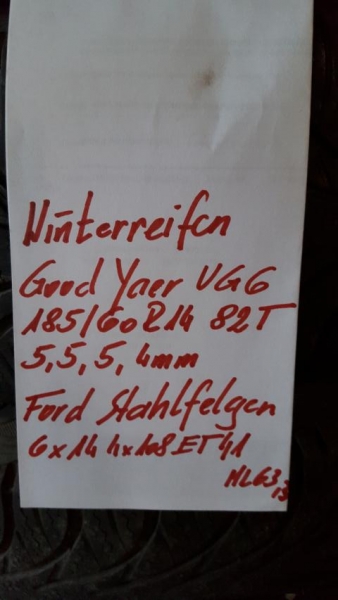 Winterreifen
Good Yaer UG6
185/60 R14 82T
5,5,5,4mm
Ford Stahlfelgen
6x14 4x108 ET41
HLG3
13